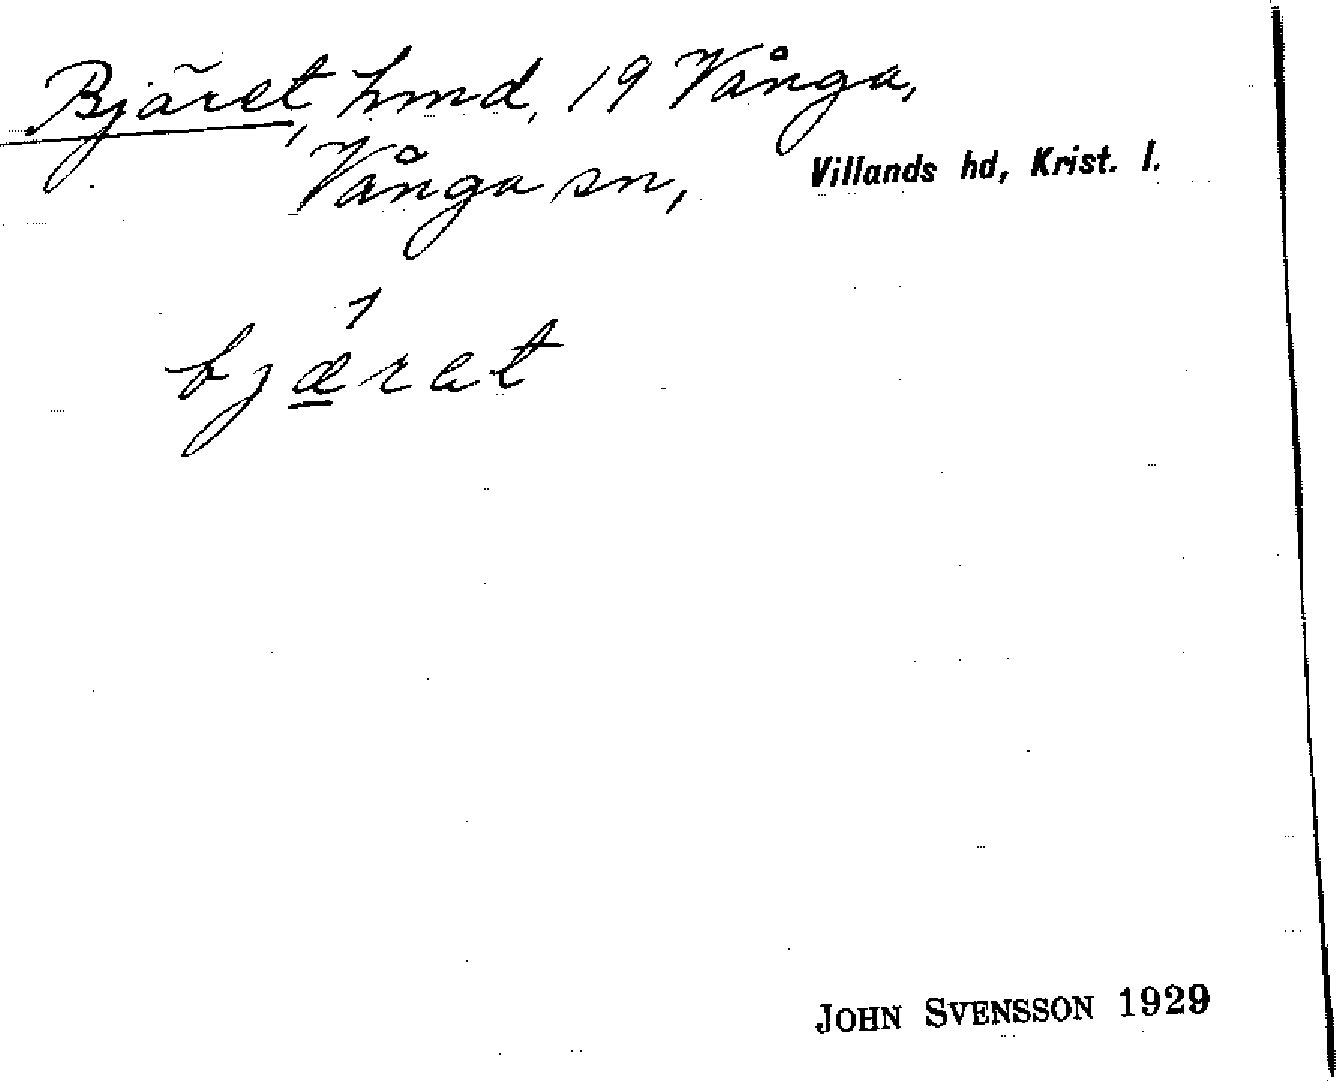 Bjäret, hmd, 19 Vånga,
Vånga sn, Villands hd, Krist. l.
bjǽ̱rat
JOHN SVENSSON 1929